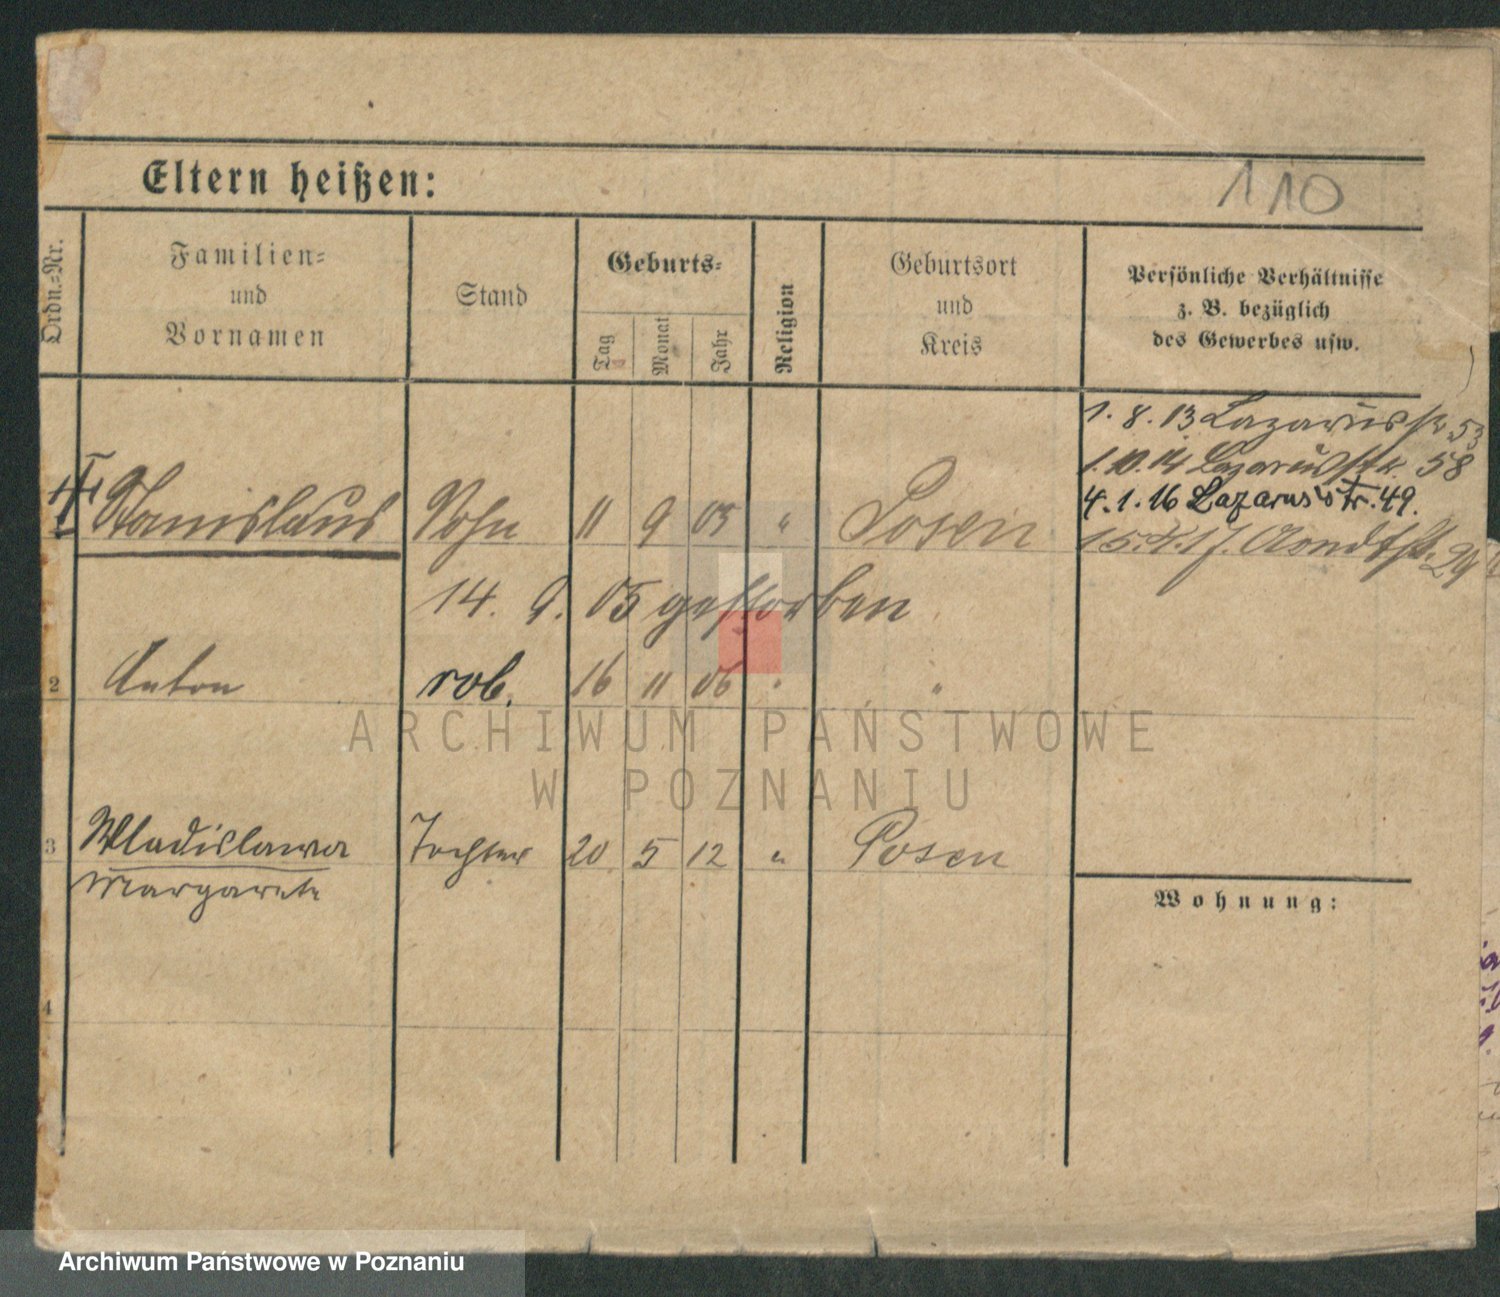 Eltern heißen:
110
Ordn.-Nr.
Familien-
und
Vornamen
Stand
Geburts-
Tag
Monat
Jahr
Religion
Geburtsort
und
Kreis
Persönliche Verhältnisse
z. B. bezüglich
des Gewerbes usw.
1. 8. 13 Lazarusstr 53
1. 10. 14 Lazarusstr. 58
4. 1. 16 Lazarusstr. 49.
15. 4. 17. Arndtstr. 29
Stanislaus Sohn 11 9 05 " Posen
14. 9. 05 gestorben
2 Anton rob. 16 11 06 " "
3 Wladislawa Tochter 20 5 12 " Posen
Margarete
Wohnung:
4
ARCHIWUM PAŃSTWOWE
W POZNANIU
Archiwum Państwowe w Poznaniu